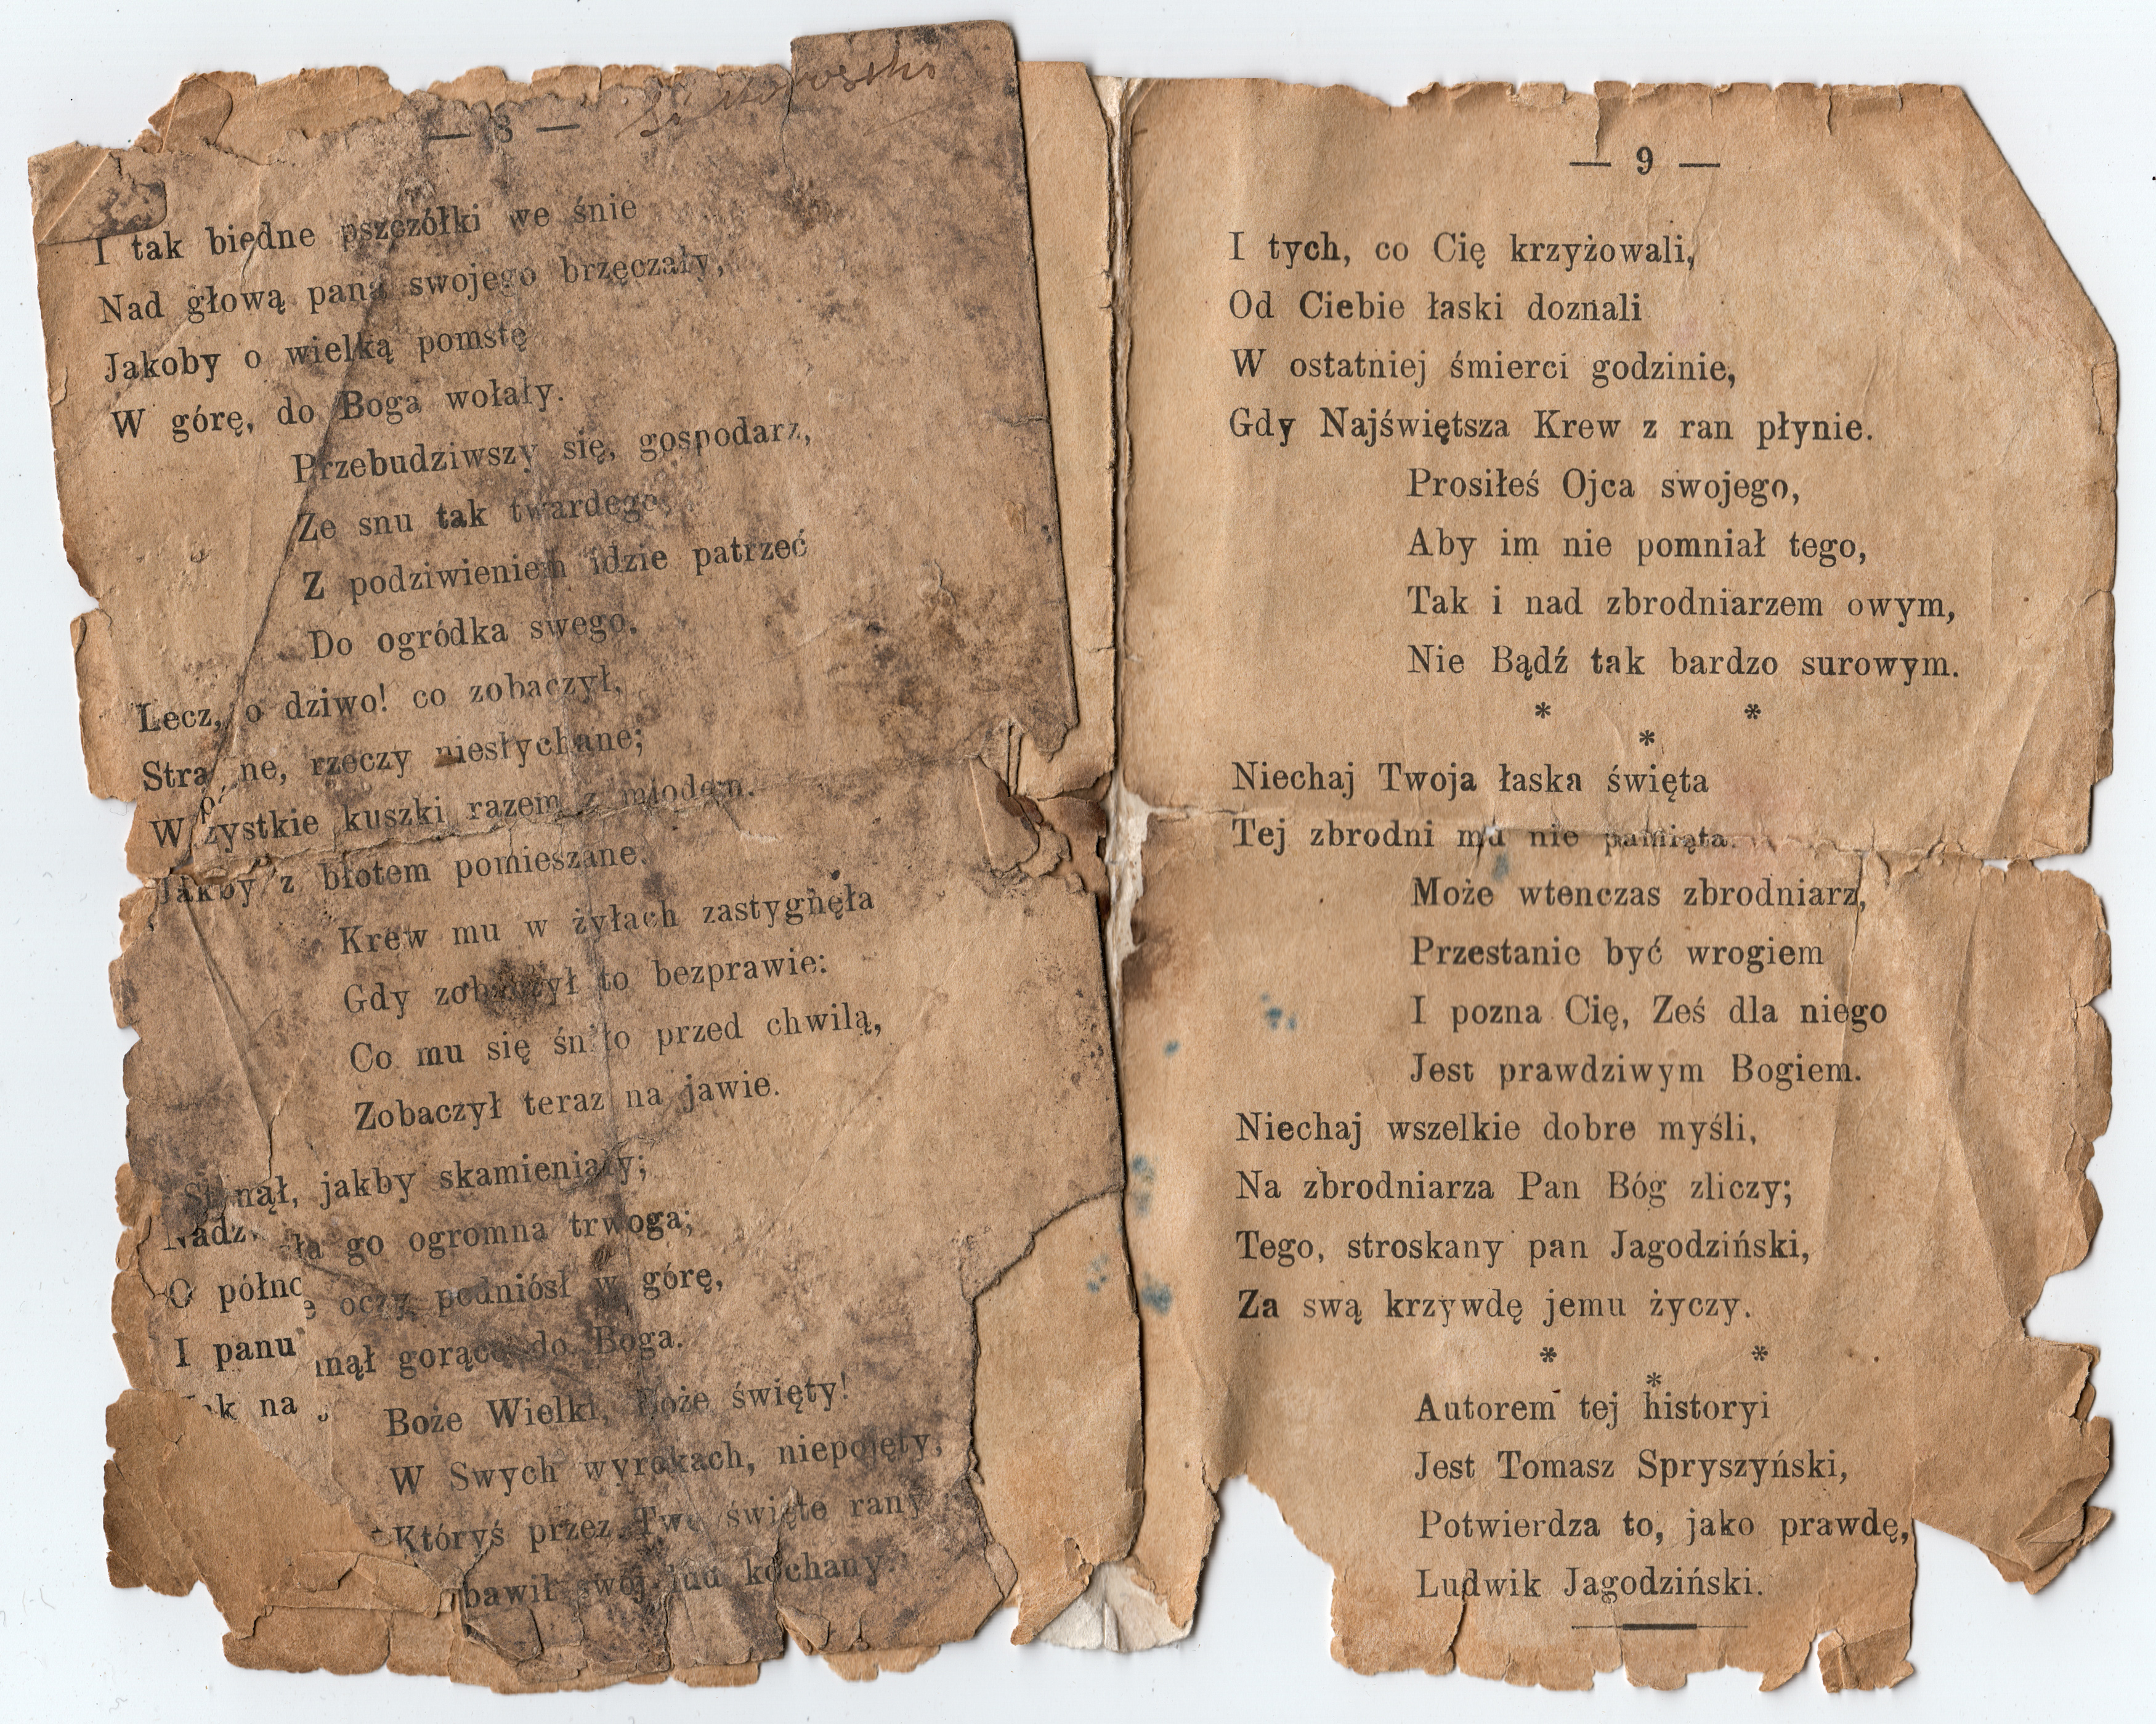 — 8 —
I tak biedne pszczółki we śnie
Nad głową pana swojego brzęczały,
Jakoby o wielką pomstę
W górę, do Boga wołały.
Przebudziwszy się, gospodarz,
Ze snu tak twardego,
Z podziwieniem idzie patrzeć
Do ogródka swego.
Lecz, o dziwo! co zobaczył,
Stra ne, rzeczy niesłychane;
W zystkie kuszki razem z miodem.
Jakby z błotem pomieszane.
Krew mu w żyłach zastygnęła
Gdy zobaczył to bezprawie:
Co mu się śniło przed chwilą,
Zobaczył teraz na jawie.
Stanął, jakby skamieniały;
ła go ogromna trwoga;
O półno
e oczy podniósł w górę,
I panu
nął gorąco do Boga.
na
Boże Wielki, Boże święty!
W Swych wyrokach, niepojęty,
Któryś przez Twe święte rany
bawił swój lud kochany
— 9 —
I tych, co Cię krzyżowali,
Od Ciebie łaski doznali
W ostatniej śmierci godzinie,
Gdy Najświętsza Krew z ran płynie.
Prosiłeś Ojca swojego,
Aby im nie pomniał tego,
Tak i nad zbrodniarzem owym,
Nie Bądź tak bardzo surowym.
* * *
Niechaj Twoja łaska święta
Tej zbrodni mu nie pamięta.
Może wtenczas zbrodniarz,
Przestanie być wrogiem
I pozna Cię, Ześ dla niego
Jest prawdziwym Bogiem.
Niechaj wszelkie dobre myśli,
Na zbrodniarza Pan Bóg zliczy;
Tego, stroskany pan Jagodziński,
Za swą krzywdę jemu życzy.
* * *
Autorem tej historyi
Jest Tomasz Spryszyński,
Potwierdza to, jako prawdę,
Ludwik Jagodziński.